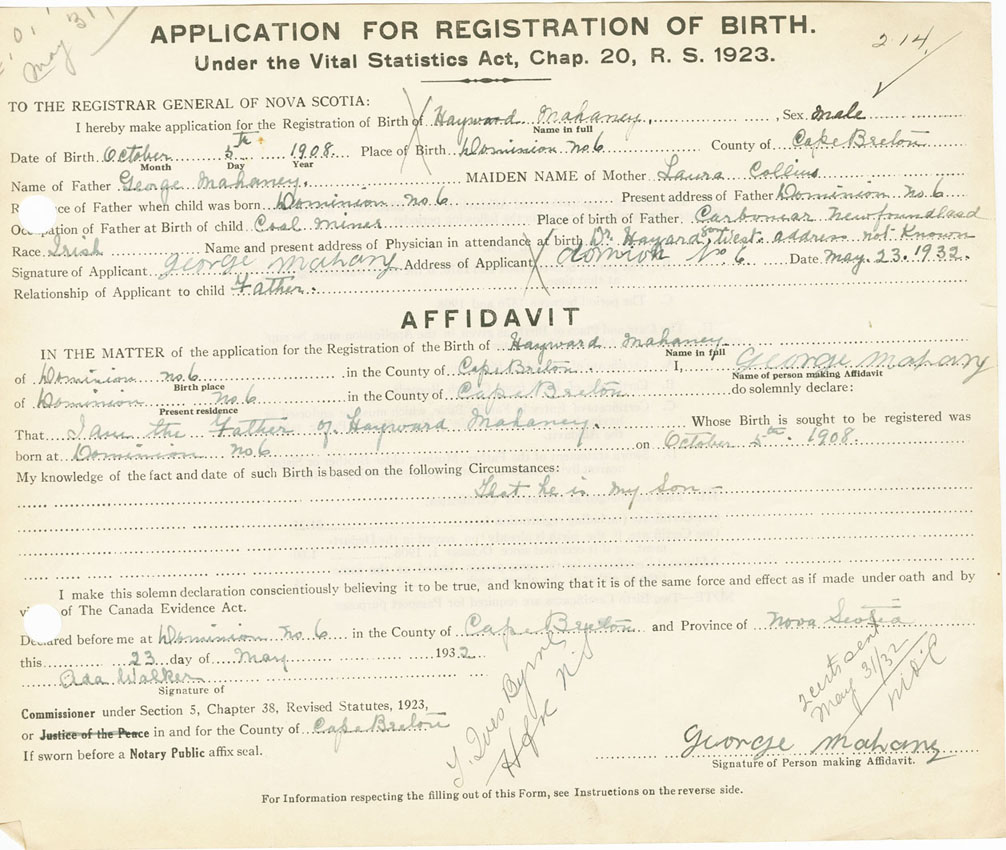 May 31
APPLICATION FOR REGISTRATION OF BIRTH.
2.14
Under the Vital Statistics Act, Chap. 20, R. S. 1923.
TO THE REGISTRAR GENERAL OF NOVA SCOTIA:
I hereby make application for the Registration of Birth of Hayward Mahaney, Sex Male
Name in full
Date of Birth October 5th 1908. Place of Birth Dominion No 6 County of Cape Breton
Month Day Year
Name of Father George Mahaney. MAIDEN NAME of Mother Laura Collins
R ce of Father when child was born Dominion No 6 Present address of Father Dominion No. 6
Occ pation of Father at Birth of child Coal Miner Place of birth of Father. Carbonear Newfoundland
Race Irish Name and present address of Physician in attendance at birth Dr. Hayard West. address not Known
Signature of Applicant George Mahany Address of Applicant Domion No 6 Date May. 23. 1932.
Relationship of Applicant to child Father.
AFFIDAVIT
IN THE MATTER of the application for the Registration of the Birth of Hayward Mahaney
Name in full
of Dominion No. 6 in the County of Cape Breton. I, George Mahany
Birth place Name of person making Affidavit
of Dominion No. 6 in the County of Cape Breton do solemnly declare:
Present residence
That I am the Father of Hayward Mahaney. Whose Birth is sought to be registered was
born at Dominion No. 6 on October 5th. 1908.
My knowledge of the fact and date of such Birth is based on the following Circumstances:
That he is my son
I make this solemn declaration conscientiously believing it to be true, and knowing that it is of the same force and effect as if made under oath and by
vi of The Canada Evidence Act.
Declared before me at Dominion No. 6 in the County of Cape Breton and Province of Nova Scotia
this 23 day of May 1932
Ada Walker
Signature of
Commissioner under Section 5, Chapter 38, Revised Statutes, 1923,
or Justice of the Peace in and for the County of Cape Breton
If sworn before a Notary Public affix seal.
Y. Ives Byrne
Hfx NS
2 certs sent
May 31/32
George Mahany
Signature of Person making Affidavit.
For Information respecting the filling out of this Form, see Instructions on the reverse side.